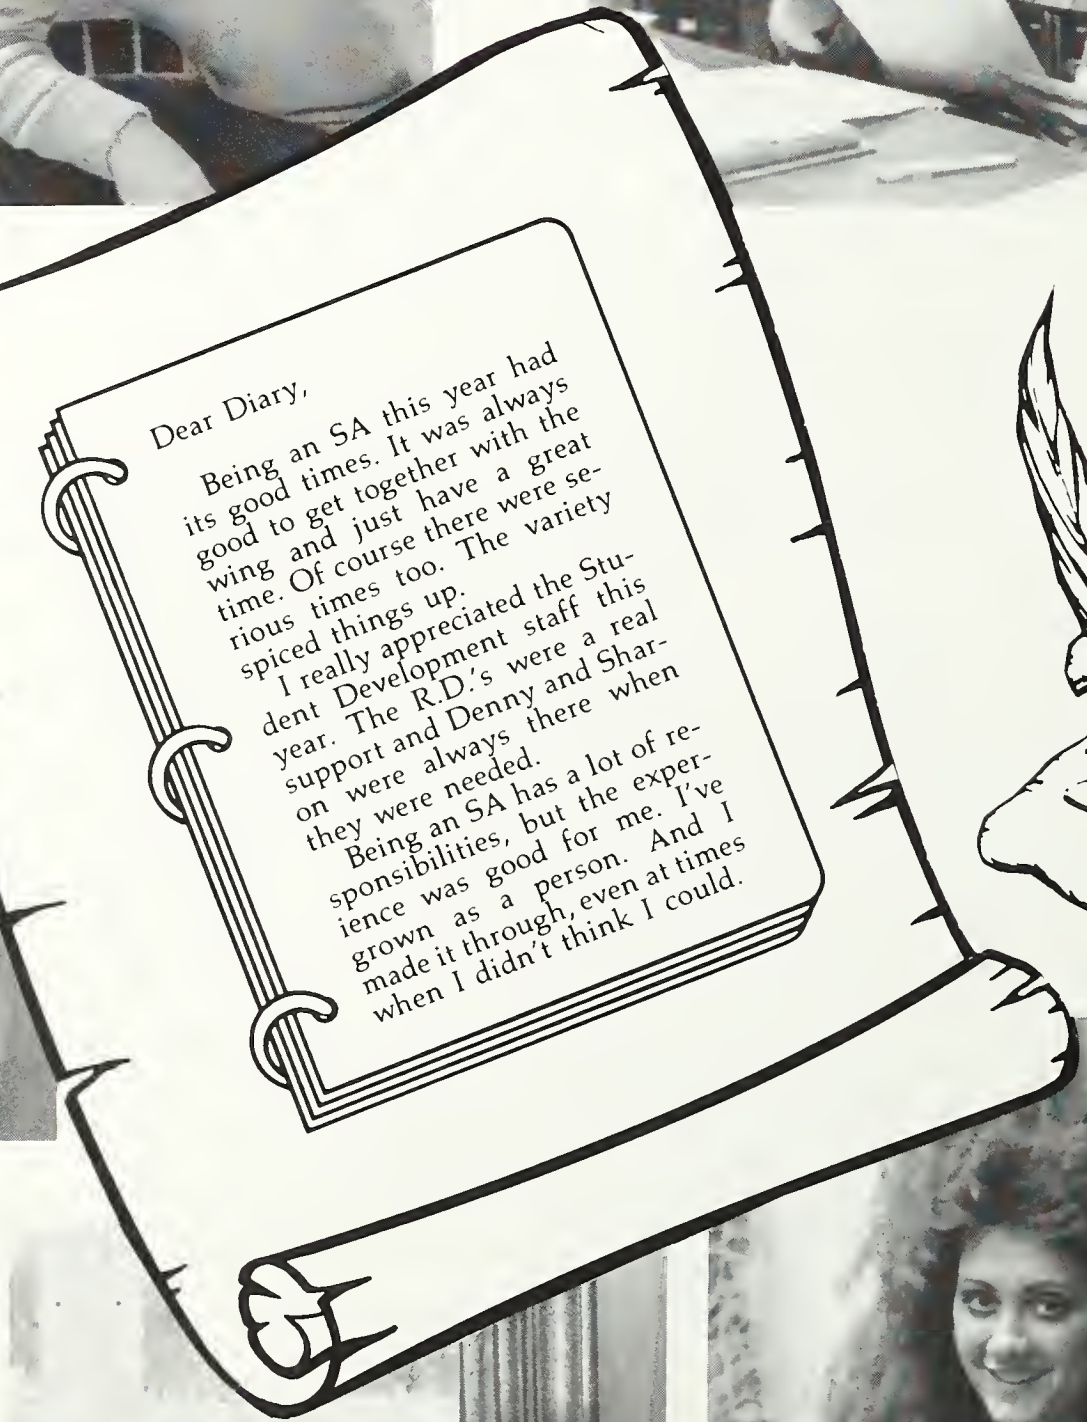 Dear Diary,
Being an SA this year had
its good times. It was always
good to get together with the
wing and just have a great
time. Of course there were se-
rious times too. The variety
spiced things up.
I really appreciated the Stu-
dent Development staff this
year. The R.D.'s were a real
support and Denny and Shar-
on were always there when
they were needed.
Being an SA has a lot of re-
sponsibilities, but the exper-
ience was good for me. I've
grown as a person. And I
made it through, even at times
when I didn't think I could.